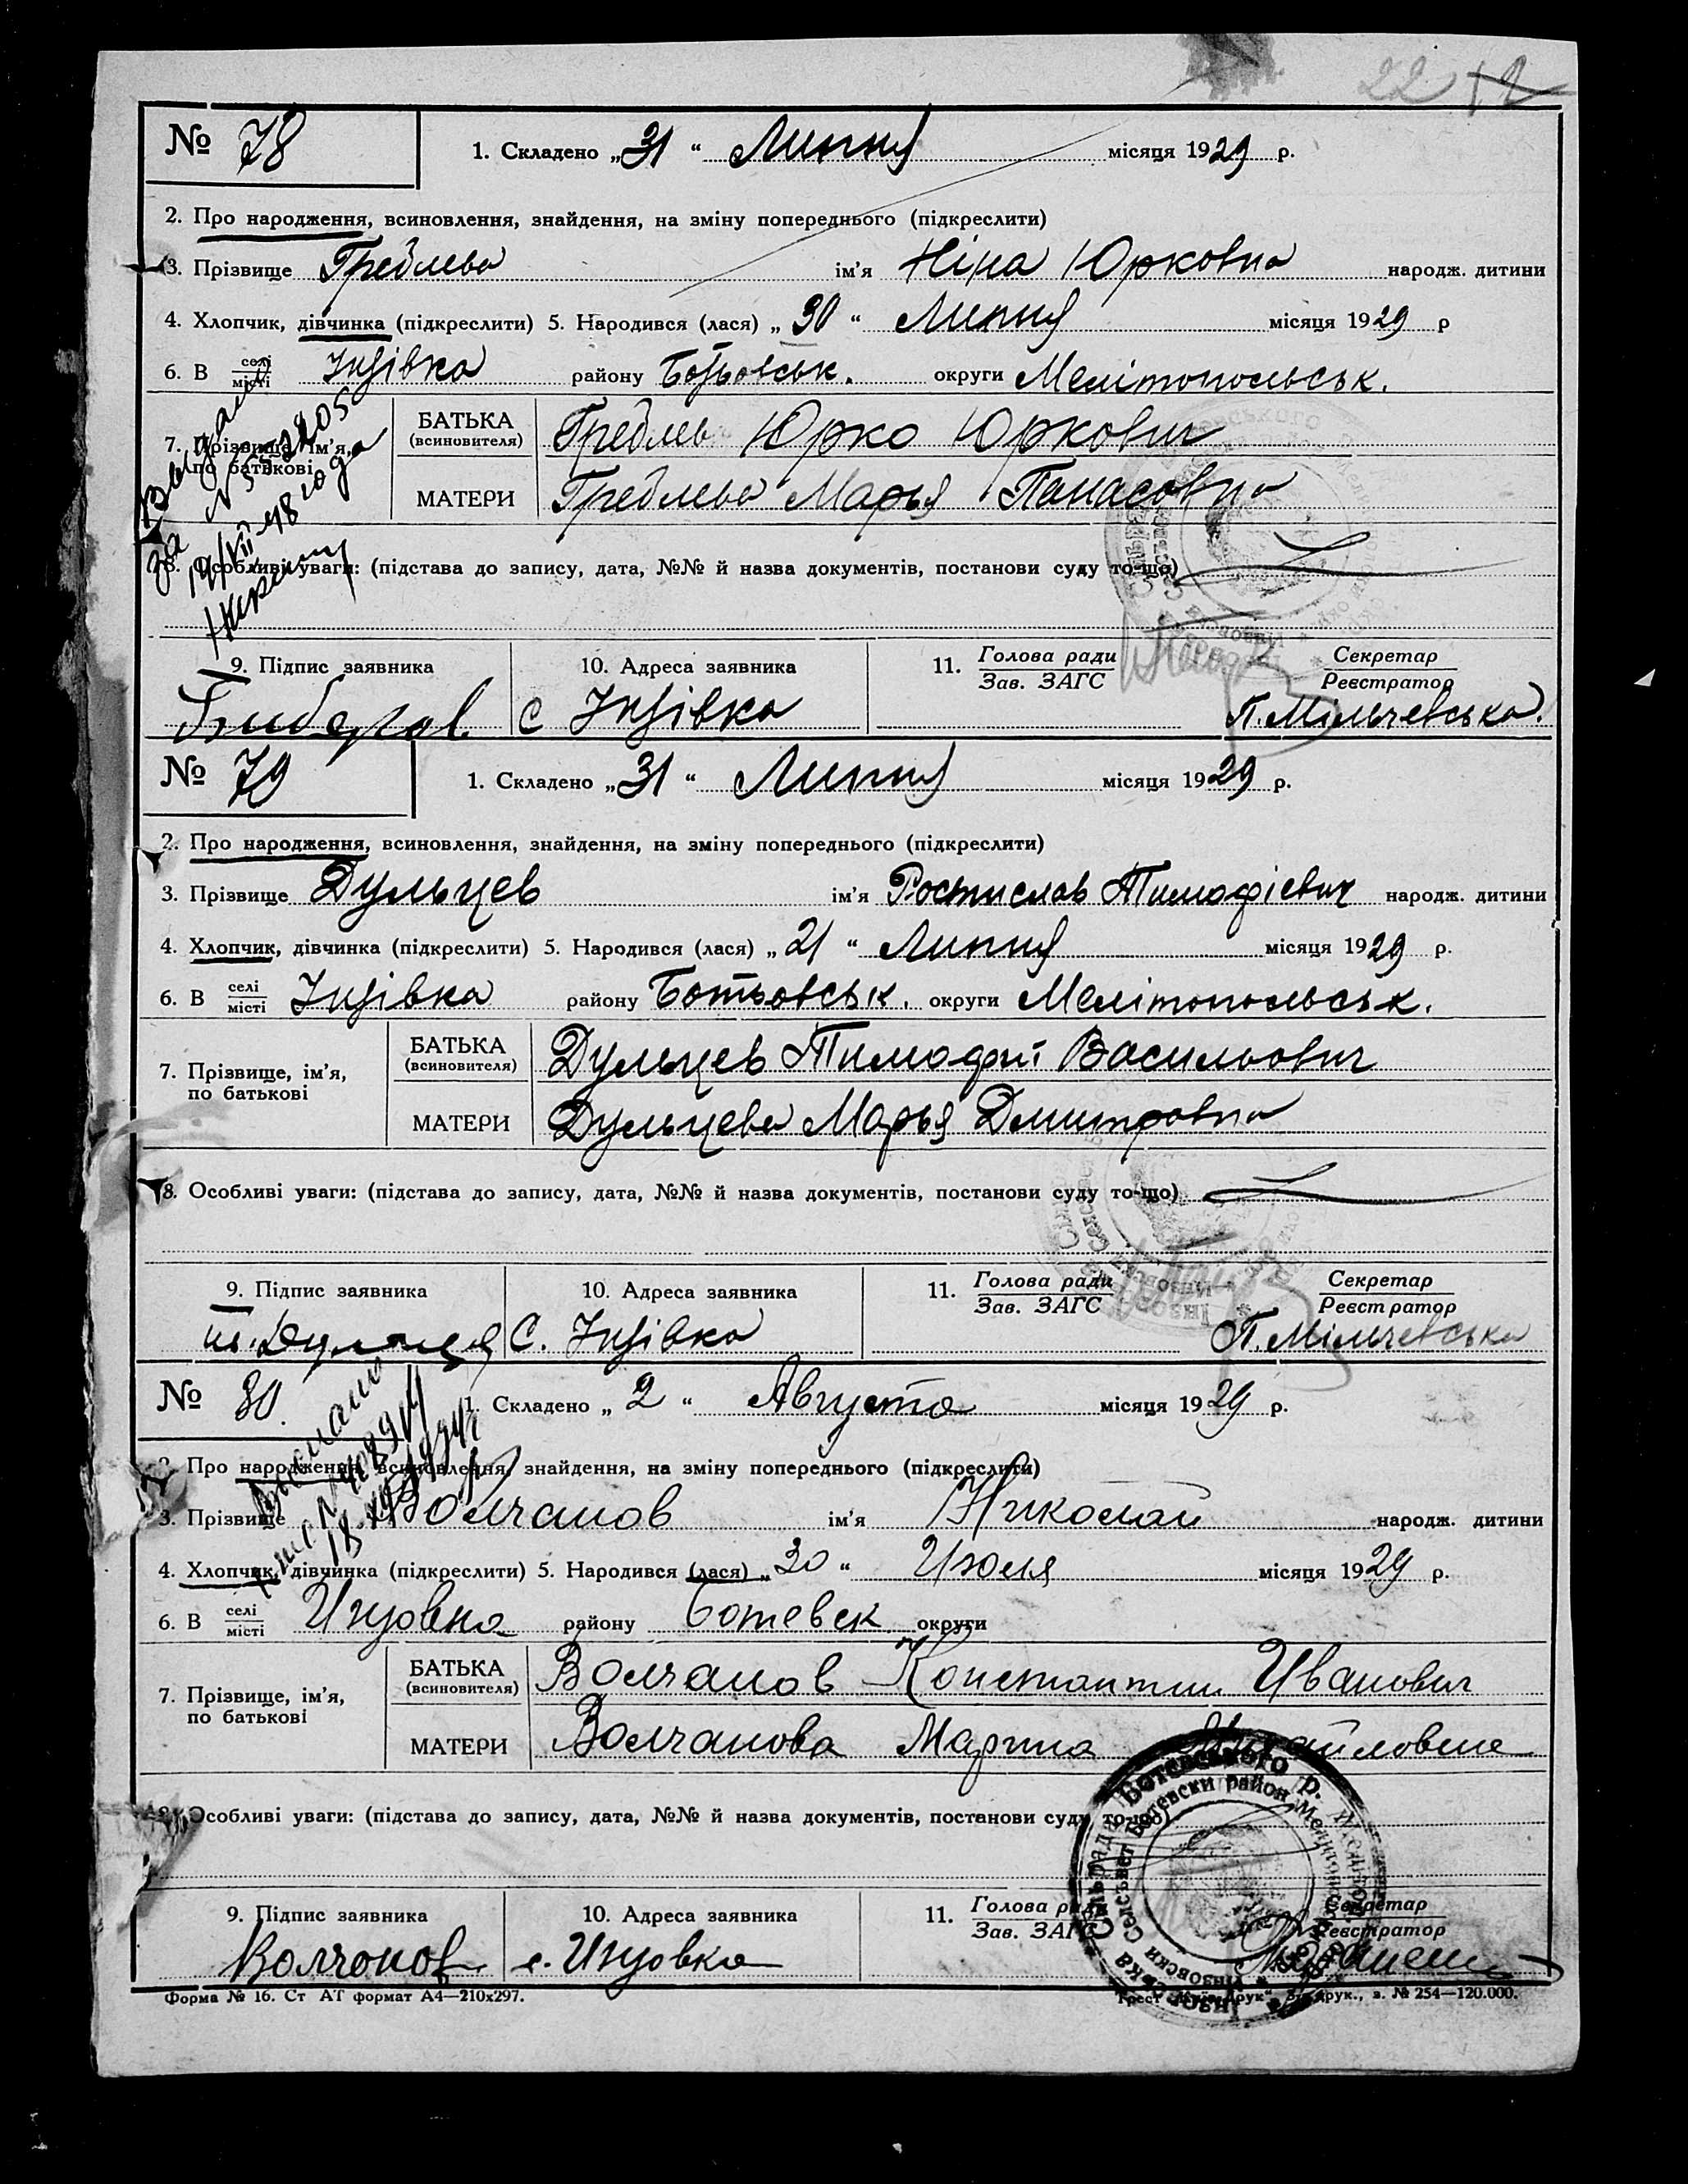 22 12
№ 78 1. Складено „31“ Липня місяця 1929 р.
2. Про народження, всиновлення, знайдення, на зміну попереднього (підкреслити)
3. Прізвище Греблева ім'я Ніна Юрковна народж. дитини
4. Хлопчик, дівчинка (підкреслити) 5. Народився (лася) „30“ Липня місяця 1929 р
6. В селі місті Інзівка району Ботьовськ. округи Мелітопольськ.
7. Прізвище, ім'я, по батькові
БАТЬКА (всиновителя) Греблев Юрко Юркович
МАТЕРИ Греблева Марья Панасовна
8. Особливі уваги: (підстава до запису, дата, №№ й назва документів, постанови суду то-що)
9. Підпис заявника 10. Адреса заявника 11. Голова ради Зав. ЗАГС Секретар Реєстратор
с Інзівка П. Мільчевська.
№ 79 1. Складено „31“ Липня місяця 1929 р.
2. Про народження, всиновлення, знайдення, на зміну попереднього (підкреслити)
3. Прізвище Дульцев ім'я Ростислав Тимофієвич народж. дитини
4. Хлопчик, дівчинка (підкреслити) 5. Народився (лася) „21“ Липня місяця 1929 р.
6. В селі місті Інзівка району Ботьовськ. округи Мелітопольськ.
7. Прізвище, ім'я, по батькові
БАТЬКА (всиновителя) Дульцев Тимофій Васильович
МАТЕРИ Дульцева Марья Дмитровна
8. Особливі уваги: (підстава до запису, дата, №№ й назва документів, постанови суду то-що)
9. Підпис заявника 10. Адреса заявника 11. Голова ради Зав. ЗАГС Секретар Реєстратор
С. Інзівка П. Мільчевська
№ 80. 1. Складено „2“ Августа місяця 1929 р.
2. Про народження, всиновлення, знайдення, на зміну попереднього (підкреслити)
3. Прізвище Волчанов ім'я Николай народж. дитини
4. Хлопчик, дівчинка (підкреслити) 5. Народився (лася) „30“ Июля місяця 1929 р.
6. В селі місті Инзовка району Ботевск округи
7. Прізвище, ім'я, по батькові
БАТЬКА (всиновителя) Волчанов Константин Иванович
МАТЕРИ Волчанова Марина Михайловна
8. Особливі уваги: (підстава до запису, дата, №№ й назва документів, постанови суду то-що)
9. Підпис заявника 10. Адреса заявника 11. Голова ради Зав. ЗАГС Секретар Реєстратор
Волчонов с. Инзовка
Форма № 16. Ст АТ формат А4—210х297. Трест „Київ-Друк“, друк., з. № 254—120.000.